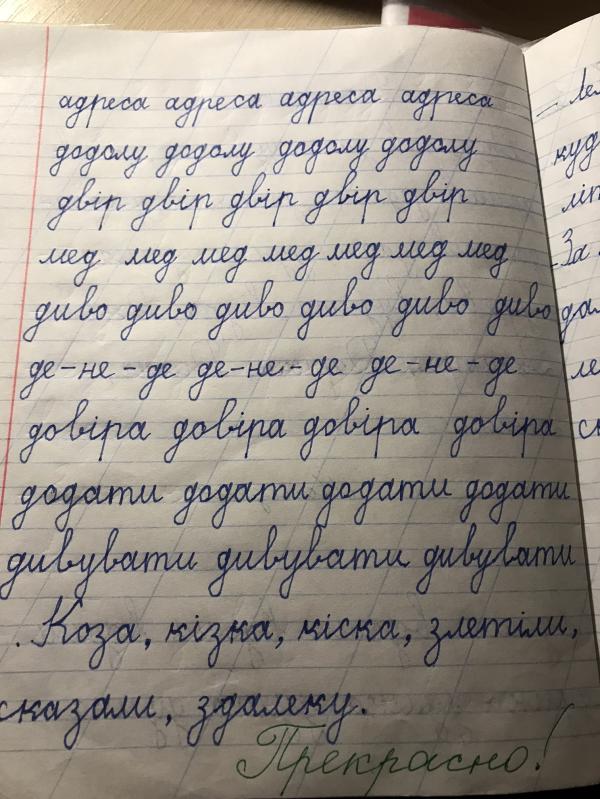 адреса адреса адреса адреса
додолу додолу додолу додолу
двір двір двір двір двір
мед мед мед мед мед мед мед
диво диво диво диво диво диво
де-не-де де-не-де де-не-де
довіра довіра довіра довіра
додати додати додати додати
дивувати дивувати дивувати
. Коза, кізка, кіска, злетіли,
сказали, здалеку.
Прекрасно!
За